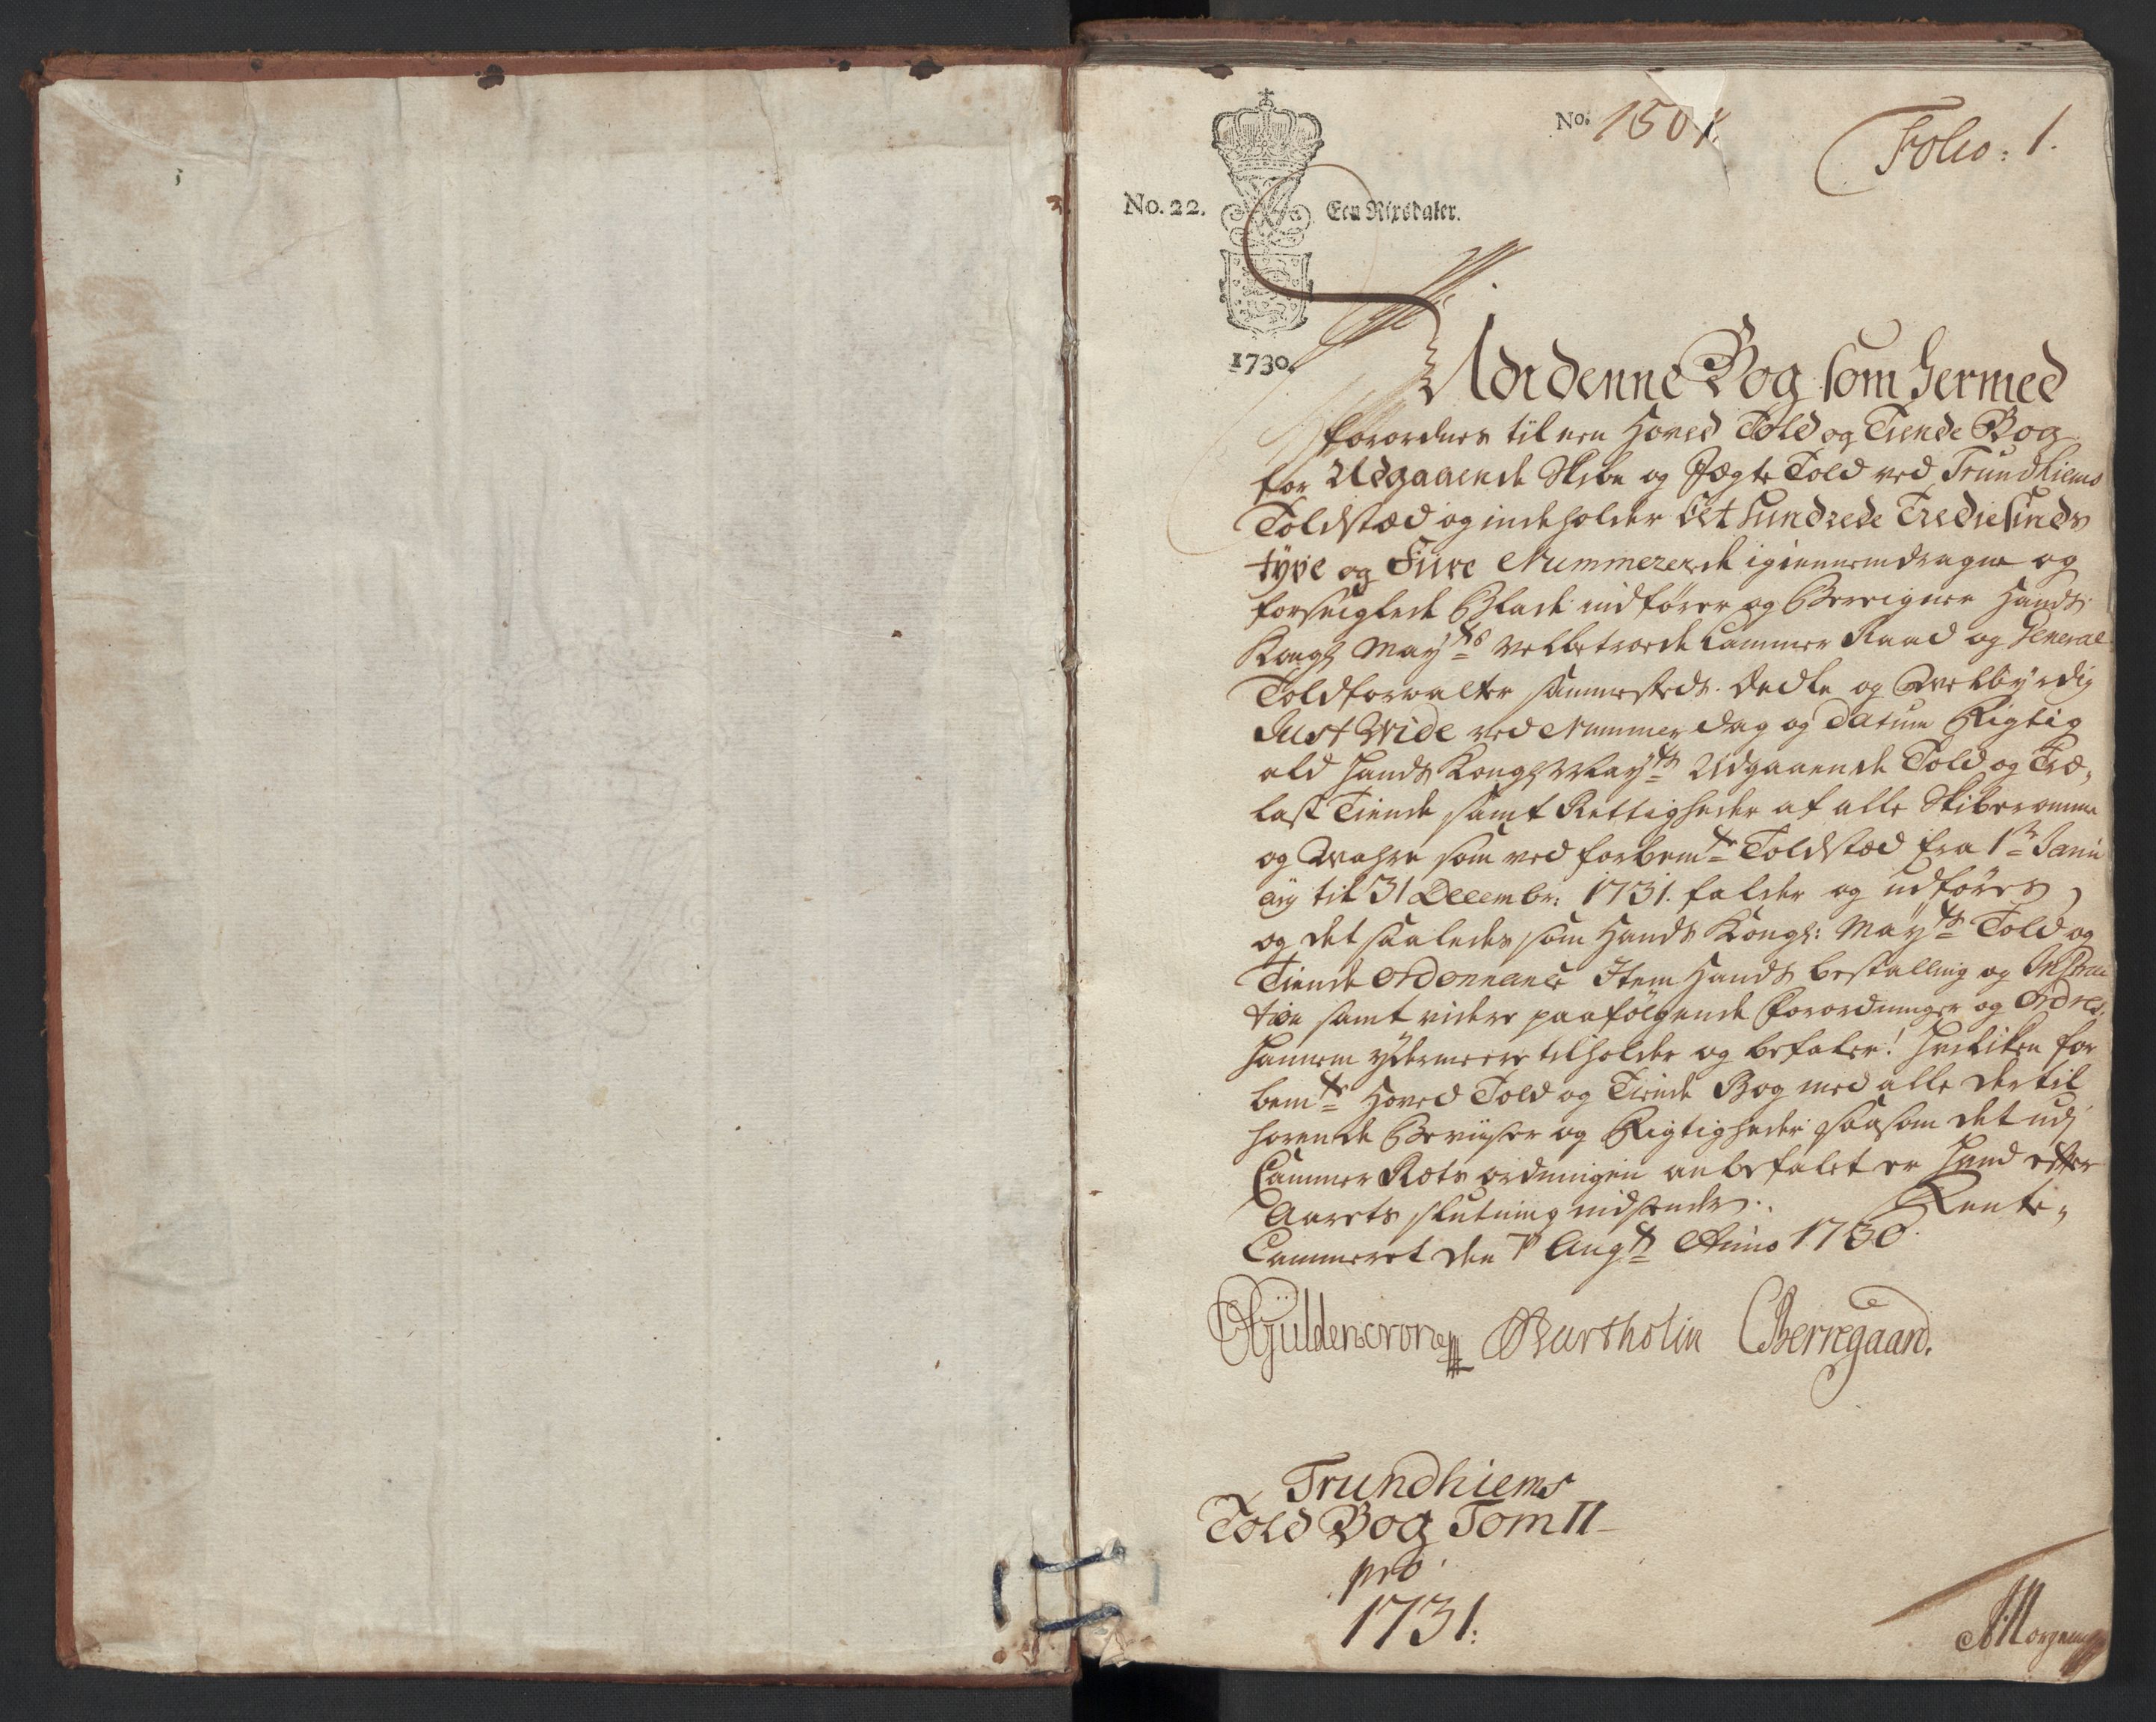 No. 1501.
Folio: 1.
No. 22. Een Rixsdaler.
1730.
Udi denne Bog som hermed
forordnes til een Hoved Told og Tiende Bog
for Udgaaende Skibe og Jægte Told ved Trundhiems
Toldstæd og indeholder Eet hundrede Tredresinds
tyve og Fiire Nummererede igiennemdragne og
forseiglede Blade indfører og Bereigner Hands
Kongl May.ts Velbetroede Cammer Raad og General
Toldforvalter sammesteds. Dedle og Velbyrdig
Just Wide ved Nummer Dag og Datum Rigtig
ald Hands Kongl May.ts Udgaaende Told og Træ-
last Tiende samt Rettigheder af alle Skiberomme
og Wahre som ved forbem.te Toldstæd fra 1.te Janu
arij til 31 Decembr: 1731. falder og udføres,
og det saaledes som Hands Kongl: May.ts Told og
Tiende Ordonnance Item Hands bestalling og Instruc
tion samt videre paafølgende Forordninger og Ordres.
Hannem ydermeere tilholder og befaler! Hvilken for
bem.te Hoved Told og Tiende Bog med alle dertil
hørende Beviiser og Rigtigheder saasom det udj
Cammer Rets ordningen anbefalet er Hand efter
Aarets slutning indsender. Rente-
Cammeret den 7 Aug.ti Anno 1730.
Gyldencrone Bartholin CBerregaard.
Trundhiems
Told Bog Tom II
pro
1731.